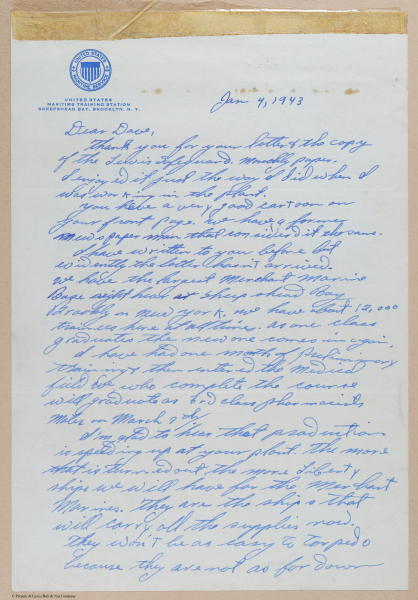 UNITED STATES MARITIME SERVICE
UNITED STATES
MARITIME TRAINING STATION
SHEEPSHEAD BAY, BROOKLYN, N. Y.
Jan 4, 1943
Dear Dave,
Thank you for your letter & the copy
of the Lewis Safeguard. Monthly paper.
I enjoyed it just the way I did when I
was working in the plant.
You have a very good cartoon on
your front page. We have a former
newspaper man that
I have written to you before but
evidently the letter hasn't arrived.
We have the largest Merchant Marine
Base right hear at Sheepshead Bay
Brooklyn New York. We have about 12,000
trainees here at all time. As one class
graduates the new one comes in again.
I have had one month of Preliminary
training & then entered the medical
field. We who complete the course
will graduate as 3rd class pharmacists
Mates on March
I'm glad to hear that production
is speeding up at your plant. The more
that is turned out the more Liberty
ships we will have for the Merchant
Marines. They are the ships that
will carry all the supplies
They won't be as easy to torpedo
because they are not as far down
© Forgan & Lyons Bolt & Nut Company